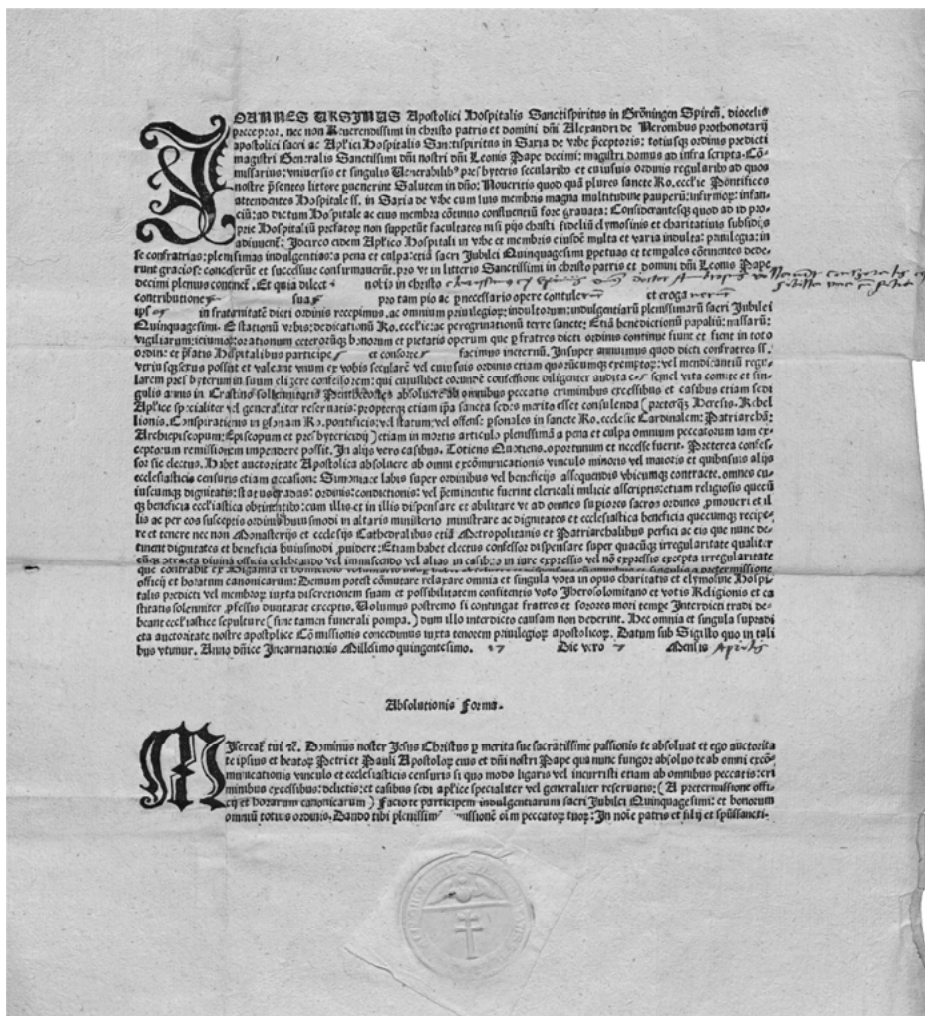 IOANNES URSINUS Apostolici Hospitalis Sanctispiritus in Gröningen Spireñ. diocesis
preceptor. nec non Reuerendissimi in christo patris et domini dñi Alexandri de Neronibus prothonotarij
apostolici sacri ac Aplici Hospitalis Sanctispiritus in Saxia de vrbe pceptoris: totiusqz ordinis predicti
magistri Generalis Sanctissimi dñi nostri dñi Leonis Pape decimi: magistri domus ad infra scripta. Cō-
missarius: vniuersis et singulis Uenerabilibꝰ presbyteris secularibꝰ et cuiusuis ordinis regularibꝰ ad quos
nostre pñtes littere puenerint Salutem in dño: Noueritis quod quā plures sancte Ro. ecclie Pontifices
attendentes Hospitale ss. in Saxia de vrbe cum suis membris magna multitudine pauperū: infirmoꝝ: infan-
ciū: ad dictum Hospitale ac eius membra cōtinuo confluentiū fore grauata: Considerantesqz quod ad id pro-
prie Hospitaliū prefatoꝝ non suppetūt facultates nisi pijs christi fideliū elymosinis et charitatiuis subsidijs
adiuuent: Idcirco eidem Aplico Hospitali in vrbe et membris eiusdē multa et varia indulta: priuilegia: in
se confratrias: plenissimas indulgentias: a pena et culpa: etiā sacri Jubilei Quinquagesimi ppetuas et tempales cōtinentes dede-
runt graciose concesserūt et successiue confirmauerūt. pro vt in litteris Sanctissimi in christo patris et domini dñi Leonis Pape
decimi plenius continet. Et quia dilect nobis in christo
contributione sua pro tam pio ac pnecessario opere contulerunt et erogauerunt
ips os in fraternitatē dicti ordinis recepimus. ac omnium priuilegioꝝ: indultorum: indulgentiarū plenissimarū sacri Jubilei
Quinquagesimi. Estationū vrbis: dedicationū Ro. ecclie: ac peregrinationū terre sancte: Etiā benedictionū papaliū: missarū:
vigiliarum: ieiunioꝝ: orationum ceterorūqz bonorum et pietatis operum que p fratres dicti ordinis continue fiunt et fient in toto
ordine et pfatis Hospitalibus participes et consortes facimus ineternū. Insuper annuimus quod dicti confratres ss.
vtriusqz sexus possint et valeant vnum ex vobis secularē vel cuiusuis ordinis etiam quorūcumqz exemptoꝝ: vel mendicantiū regu-
larem presbyterum in suum eligere confessorem: qui cuiuslibet eorundē confessione diligenter audita eos semel vita comite et sin-
gulis annis in Crastino sollennitatis Penthecostes absoluere ab omnibus peccatis criminibus excessibus et casibus etiam sedi
Aplice specialiter vel generaliter reseruatis: propterqz etiam ipa sancta sedes merito esset consulenda (preterqz Heresis. Rebel
lionis. Conspirationis in psonam Ro. pontificis: vel statum: vel offense psonales in sancte Ro. ecclesie Cardinalem: Patriarchā:
Archiepiscopum: Episcopum et presbytericidij) etiam in mortis articulo plenissimā a pena et culpa omnium peccatorum iam ex-
ceptorum remissionem impendere possit. In alijs vero casibus. Totiens Quotiens. oportunum et necesse fuerit. Preterea confes-
sor sic electus. Habet auctoritate Apostolica absoluere ab omni excōmunicationis vinculo minoris vel maioris et quibusuis alijs
ecclesiasticis censuris etiam occasione Simoniace labis super ordinibus vel beneficijs assequendis vbicumqz contracte. omnes cu-
iuscumqz dignitatis: status: gradus: ordinis: condictionis: vel pminentie fuerint clericali milicie asscriptis: etiam religiosis quecū
qz beneficia ecclesiastica obtinentibꝰ: cum illis et in illis dispensare et abilitare vt ad omnes supiores sacros ordines pmoueri et il
lis ac per eos susceptis ordinibꝰ huiusmodi in altaris ministerio ministrare ac dignitates et ecclesiastica beneficia quecumqz recipe-
re et tenere nec non Monasterijs et ecclesijs Cathedralibus etiā Metropolitanis et Patriarchalibus perfici ac eis que nunc de-
tinent dignitates et beneficia huiusmodi puidere: Etiam habet electus confessor dispensare super quacūqz irregularitate qualiter
cūqz cōtracta diuina officia celebrando vel inmiscendo vel alias in casibꝰ a iure expressis vel nō expressis excepta irregularitate
que contrahit ex Bigamia et homicidio voluntario
officij et horarum canonicarum: Demum potest cōmutare relaxare omnia et singula vota in opus charitatis et elymosine Hospi-
talis predicti vel membroꝝ iuxta discretionem suam et possibilitatem confitentis voto Iherosolomitano et votis Religionis et ca
stitatis solenniter pfessis duntaxat exceptis. Uolumus postremo si contingat fratres et sorores mori tempe Interdicti tradi de-
beant ecclesiastice sepulture (sine tamen funerali pompa.) dum illo interdicto causam non dederint. Hec omnia et singula supradi
cta auctoritate nostre apostplice Cōmissionis concedimus iuxta tenorem priuilegioꝝ apostolicoꝝ. Datum sub Sigillo quo in tali
bus vtimur. Anno dñice Incarnationis Millesimo quingentesimo. 17 Die vero 7 Mensis Aprilis
Absolutionis Forma.
Misereat tui ⁊c. Dominus noster Jesus Christus p merita sue sacratissime passionis te absoluat et ego auctorita
te ipsius et beatoꝝ Petri et Pauli Apostoloꝝ eius et dñi nostri Pape qua nunc fungor absoluo te ab omni excō-
municationis vinculo et ecclesiasticis censuris si quo modo ligaris vel incurristi etiam ab omnibus peccatis: cri
minibus excessibus: delictis: et casibus sedi aplice specialiter vel generaliter reseruatis: (A pretermissione offi-
cij et horarum canonicarum) Facio te participem indulgentiarum sacri Jubilei Quinquagesimi: et bonorum
omniū totius ordinis. Dando tibi plenissimā remissionē oīm peccatoꝝ tuoꝝ: In noīe patris et filij et spūssancti.